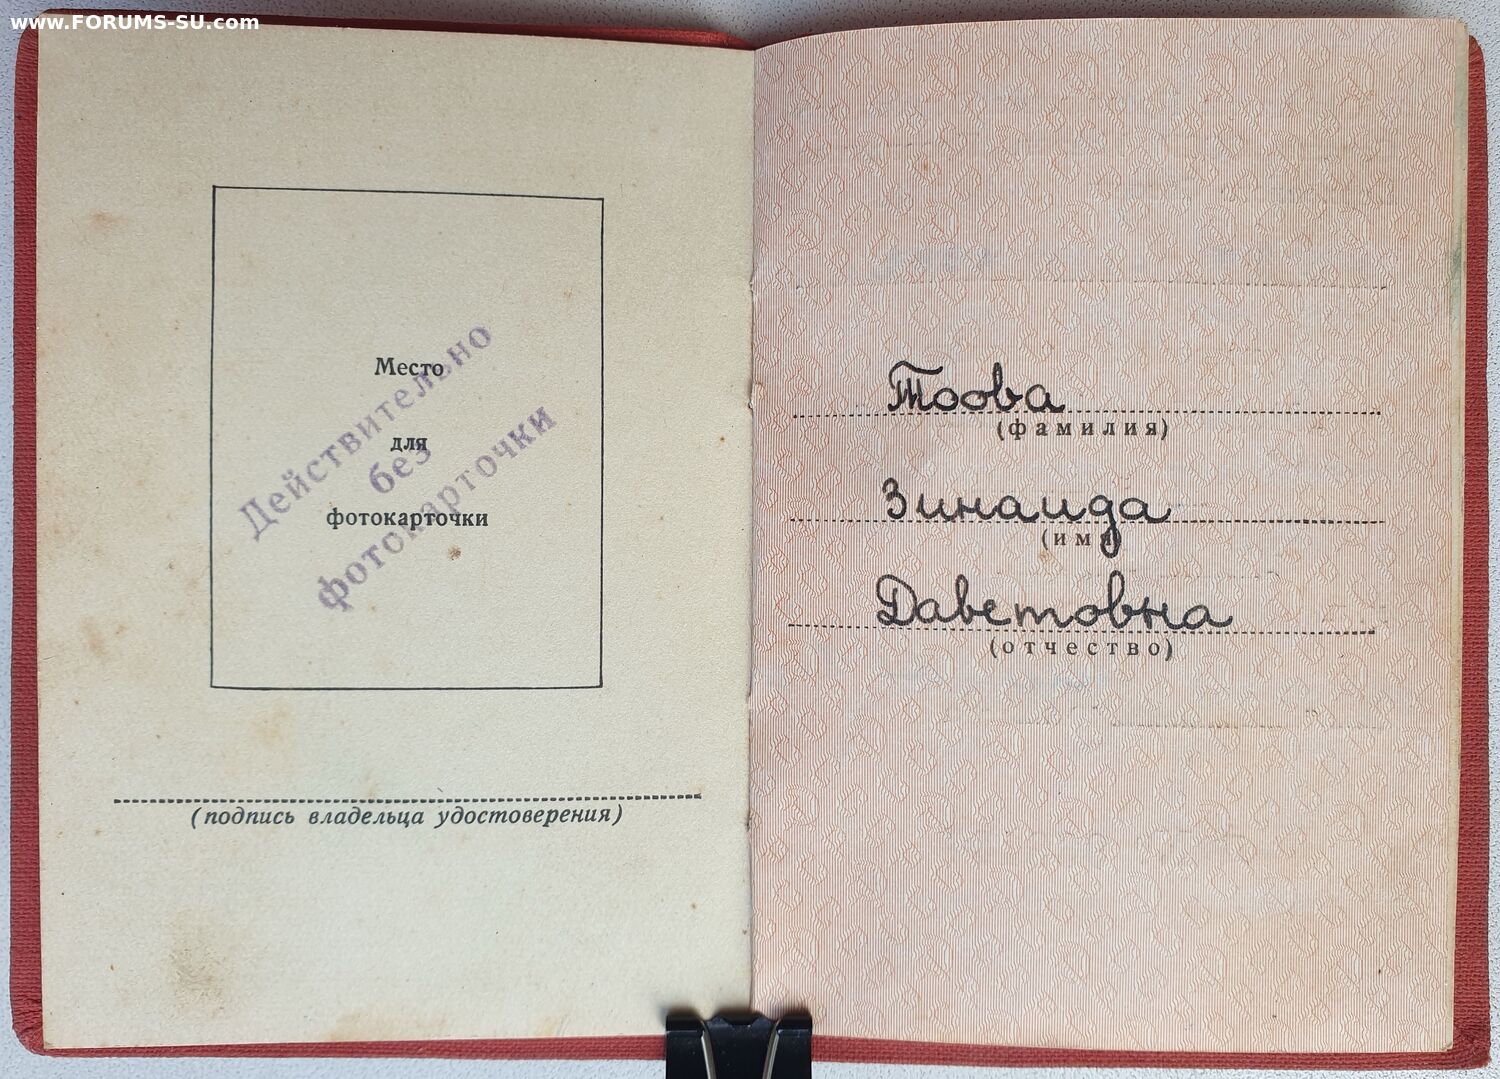 www.FORUMS-SU.com
Место
для
фотокарточки
Действительно
без
фотокарточки
(подпись владельца удостоверения)
Тоова
(фамилия)
Зинаида
(имя)
Даветовна
(отчество)